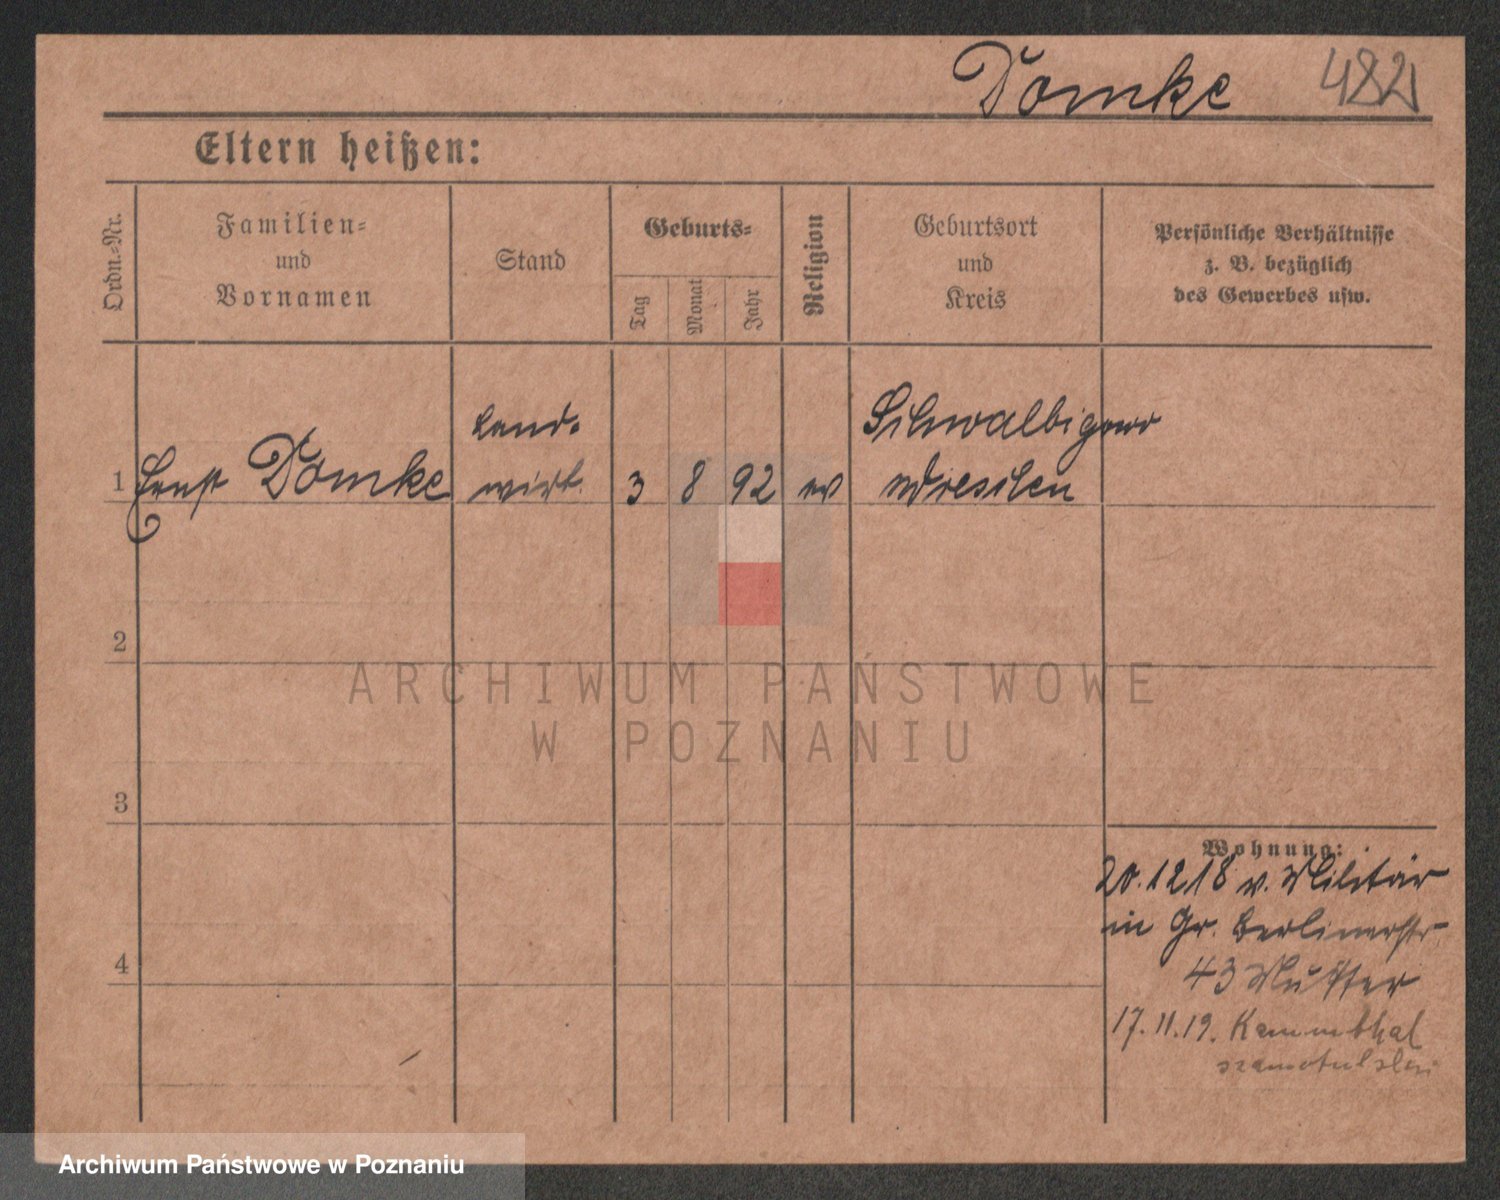 Domke 482
Eltern heißen:
Ordn.-Nr.
Familien-
und
Vornamen
Stand
Geburts-
Tag
Monat
Jahr
Religion
Geburtsort
und
Kreis
Persönliche Verhältnisse
z. B. bezüglich
des Gewerbes usw.
1 Ernst Domke
Land-
wirt.
3 8 92 ev
Schwalbigowo
Wreschen
2
3
4
Wohnung:
20.12 18 v. Militär
in Gr. Berlinerstr.
43 Mutter
17.11.19. Kammthal
ARCHIWUM PAŃSTWOWE
W POZNANIU
Archiwum Państwowe w Poznaniu